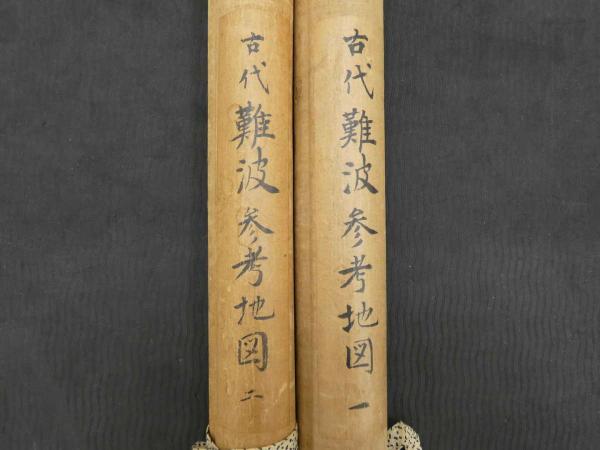 古代難波参考地図一
古代難波参考地図二